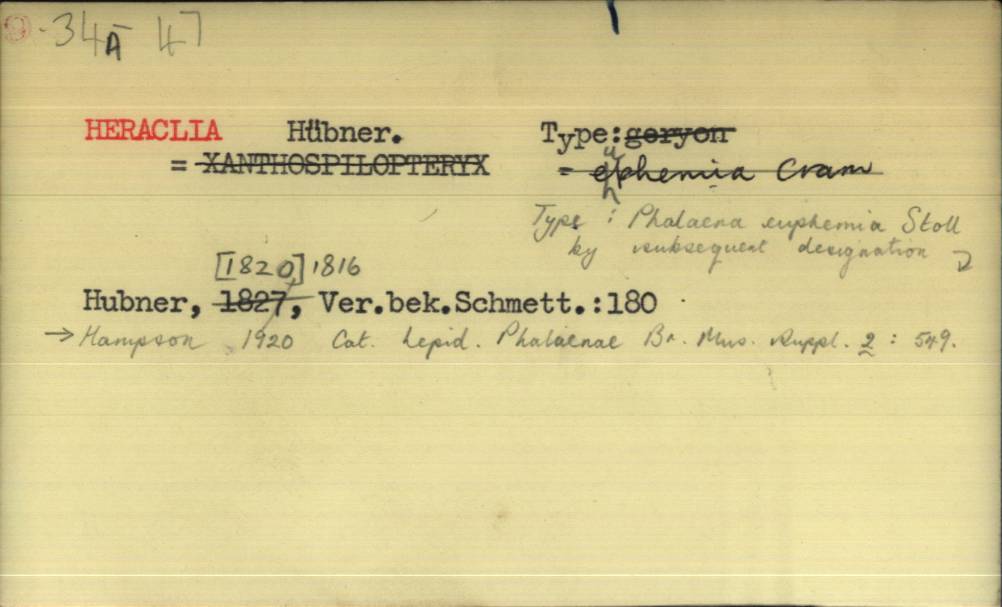 34A 47
HERACLIA Hübner. Type: geryon
= XANTHOSPILOPTERYX = euphemia Cram
Type: Phalaena euphemia Stoll
by subsequent designation
[1820] 1816
Hubner, 1827, Ver.bek.Schmett.:180
→ Hampson 1920 Cat. Lepid. Phalaenae Br. Mus. Suppl. 2 : 549.